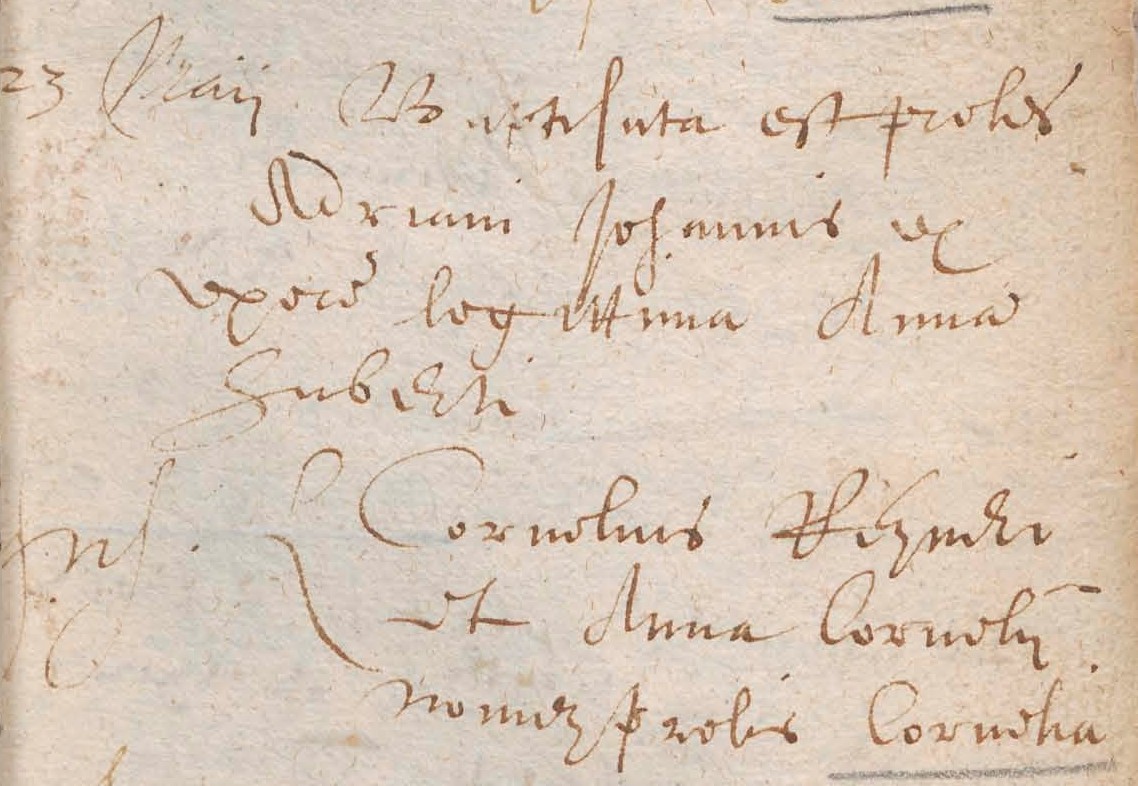 23 Maij Baptisata est proles
Adriani Johannis ex
uxore legittima Anna
Huberti
Cornelius Reyneri
et Anna Cornelij
nomen prolis Cornelia